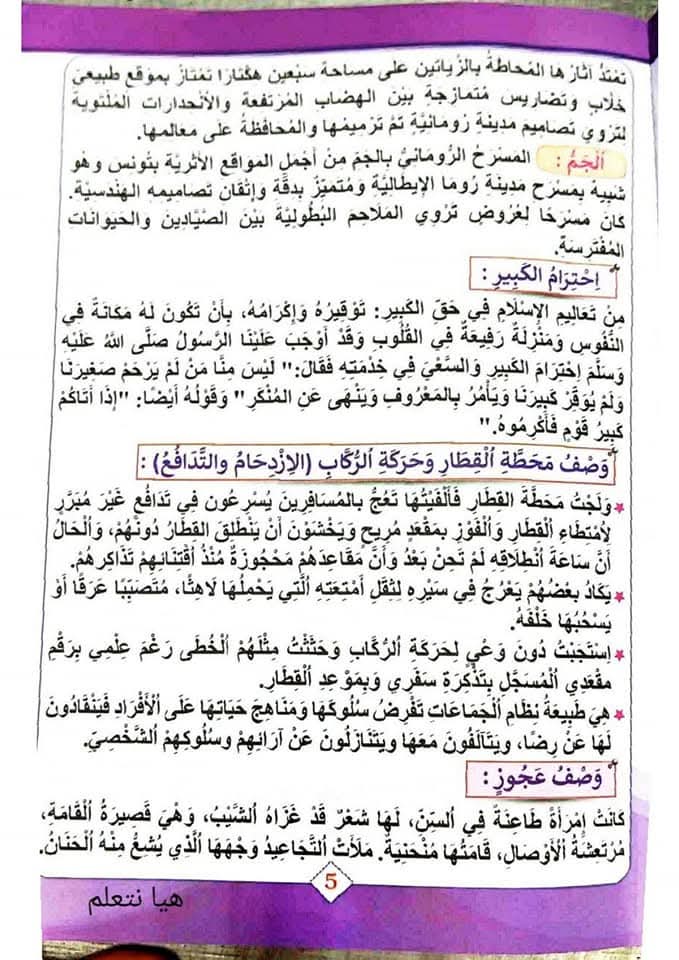 تَمْتَدُّ آثَارُهَا المُحَاطَةُ بِالزَّيَاتِين عَلَى مِسَاحَةِ سَبْعِين هِكْتَارًا تَمْتَازُ بِمَوْقِعٍ طَبِيعِيٍّ
خَلَّابٍ وَتَضَارِيسَ مُتَمَازِجَةٍ بَيْنَ الهِضَابِ المُرْتَفِعَةِ وَالأَنْحِدَارَاتِ المُلْتَوِيَةِ
لِتَرْوِي تَصَامِيمَ مَدِينَةٍ رُومَانِيَّةٍ تَمَّ تَرْمِيمُهَا وَالمُحَافَظَةُ عَلَى مَعَالِمِهَا.
اَلْجَمُّ : المَسْرَحُ الرُّومَانِيُّ بِالجَمِّ مِنْ أَجْمَلِ المَوَاقِعِ الأَثَرِيَّةِ بِتُونس وَهُوَ
شَبِيهٌ بِمَسْرَحِ مَدِينَةِ رُومَا الإِيطَالِيَّةِ وَمُتَمَيِّزٌ بِدِقَّةِ وَإِتْقَانِ تَصَامِيمِهِ الهَنْدَسِيَّةِ.
كَانَ مَسْرَحًا لِعُرُوضٍ تَرْوِي المَلَاحِمَ البُطُولِيَّةَ بَيْنَ الصَّيَّادِينَ وَالحَيَوَانَاتِ
المُفْتَرِسَةِ.
اِحْتِرَامُ الكَبِيرِ :
مِنْ تَعَالِيمِ الإِسْلَامِ فِي حَقِّ الكَبِيرِ: تَوْقِيرُهُ وَإِكْرَامُهُ، بِأَنْ تَكُونَ لَهُ مَكَانَةٌ فِي
النُّفُوسِ وَمَنْزِلَةٌ رَفِيعَةٌ فِي القُلُوبِ وَقَدْ أَوْجَبَ عَلَيْنَا الرَّسُولُ صَلَّى اللَّهُ عَلَيْهِ
وَسَلَّمَ اِحْتِرَامَ الكَبِيرِ وَالسَّعْيَ فِي خِدْمَتِهِ فَقَالَ:" لَيْسَ مِنَّا مَنْ لَمْ يَرْحَمْ صَغِيرَنَا
وَلَمْ يُوَقِّرْ كَبِيرَنَا وَيَأْمُرْ بِالمَعْرُوفِ وَيَنْهَى عَنِ المُنْكَرِ" وَقَوْلُهُ أَيْضًا: "إِذَا أَتَاكُمْ
كَبِيرُ قَوْمٍ فَأَكْرِمُوهُ."
وَصْفُ مَحَطَّةِ اُلْقِطَارِ وَحَرَكَةِ اُلرُّكَّابِ (الاِزْدِحَامُ والتَّدَافُعُ) :
وَلَجْتُ مَحَطَّةَ القِطَارِ فَأَلْفَيْتُهَا تَعُجُّ بِالمُسَافِرِينَ يُسْرِعُونَ فِي تَدَافُعٍ غَيْرَ مُبَرَّرٍ
لِاُمْتِطَاءِ اُلْقِطَارِ وَاُلْفَوْزِ بِمَقْعَدٍ مُرِيحٍ وَيَخْشَوْنَ أَنْ يَنْطَلِقَ القِطَارُ دُونَهُمْ، وَاُلْحَالُ
أَنَّ سَاعَةَ اُنْطِلَاقِهِ لَمْ تَحِنْ بَعْدُ وَأَنَّ مَقَاعِدَهُمْ مَحْجُوزَةٌ مُنْذُ اُقْتِنَائِهِمْ تَذَاكِرَهُمْ.
يَكَادُ بَعْضُهُمْ يَعْرُجُ فِي سَيْرِهِ لِثِقَلِ أَمْتِعَتِهِ اُلَّتِي يَحْمِلُهَا لَاهِثًا، مُتَصَبِّبًا عَرَقًا أَوْ
يَسْحَبُهَا خَلْفَهُ.
اِسْتَجَبْتُ دُونَ وَعْيٍ لِحَرَكَةِ اُلرُّكَّابِ وَحَثَثْتُ مِثْلَهُمْ اُلْخُطَى رَغْمَ عِلْمِي بِرَقْمِ
مَقْعَدِي اُلْمُسَجَّلِ بِتَذْكِرَةِ سَفَرِي وَبِمَوْعِدِ اُلْقِطَارِ.
هِيَ طَبِيعَةُ نِظَامِ اُلْجَمَاعَاتِ تَفْرِضُ سُلُوكَهَا وَمَنَاهِجَ حَيَاتِهَا عَلَى اُلْأَفْرَادِ فَيَنْقَادُونَ
لَهَا عَنْ رِضًا، وَيَتَآلَفُونَ مَعَهَا وَيَتَنَازَلُونَ عَنْ آرَائِهِمْ وَسُلُوكِهِمْ اُلشَّخْصِيِّ.
وَصْفُ عَجُوزٍ :
كَانَتْ اِمْرَأَةً طَاعِنَةً فِي اُلسِّنِّ، لَهَا شَعْرٌ قَدْ غَزَاهُ اُلشَّيْبُ، وَهِيَ قَصِيرَةُ اُلْقَامَةِ،
مُرْتَعِشَةُ اُلْأَوْصَالِ، قَامَتُهَا مُنْحَنِيَةٌ. مَلَأَتْ اُلتَّجَاعِيدُ وَجْهَهَا اُلَّذِي يُشِعُّ مِنْهُ اُلْحَنَانُ.
5
هيا نتعلم